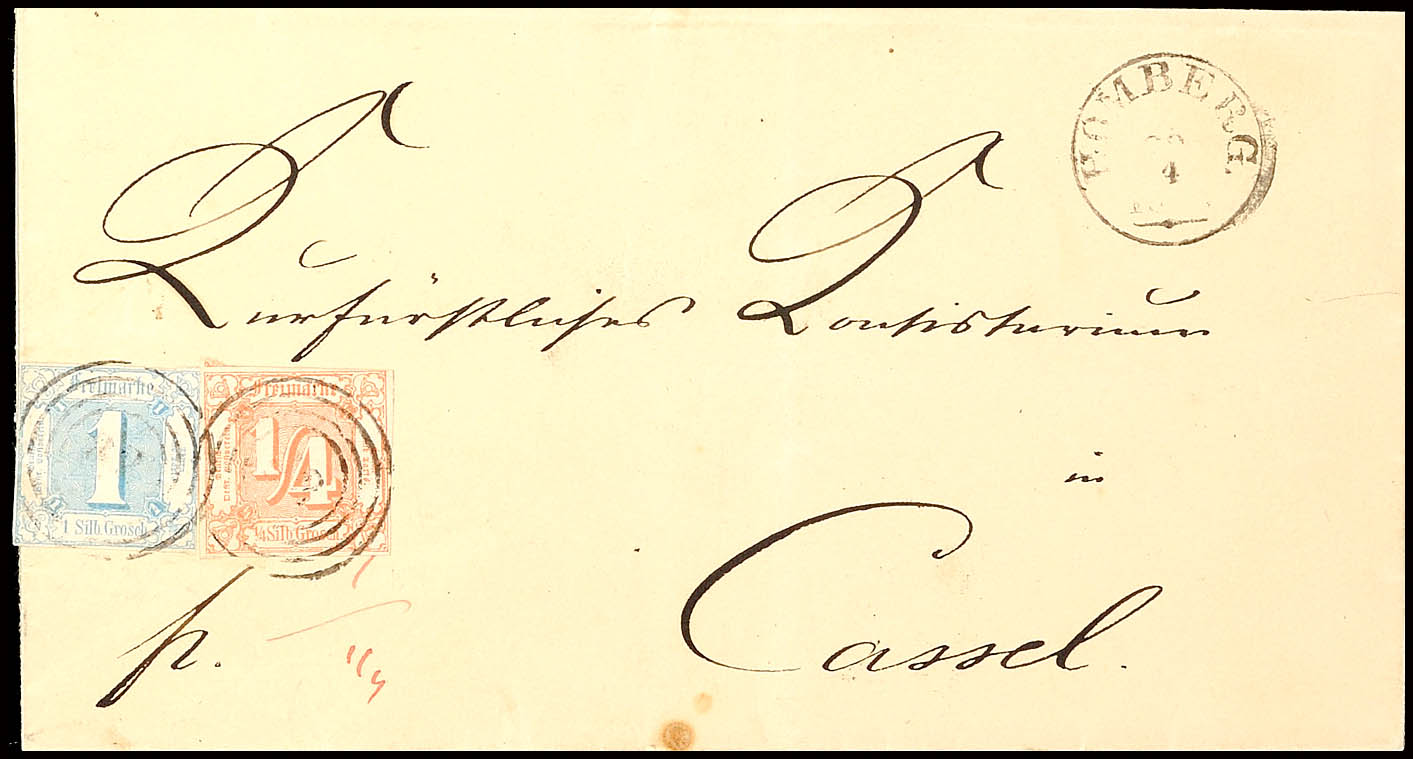 HOMBERG
4
Kurfürstliches Konsistorium
in
Cassel.
Freimarke
1
1 Silb Grosch
Freimarke
1/4
1/4 Silb Grosch
p.
1 1/4